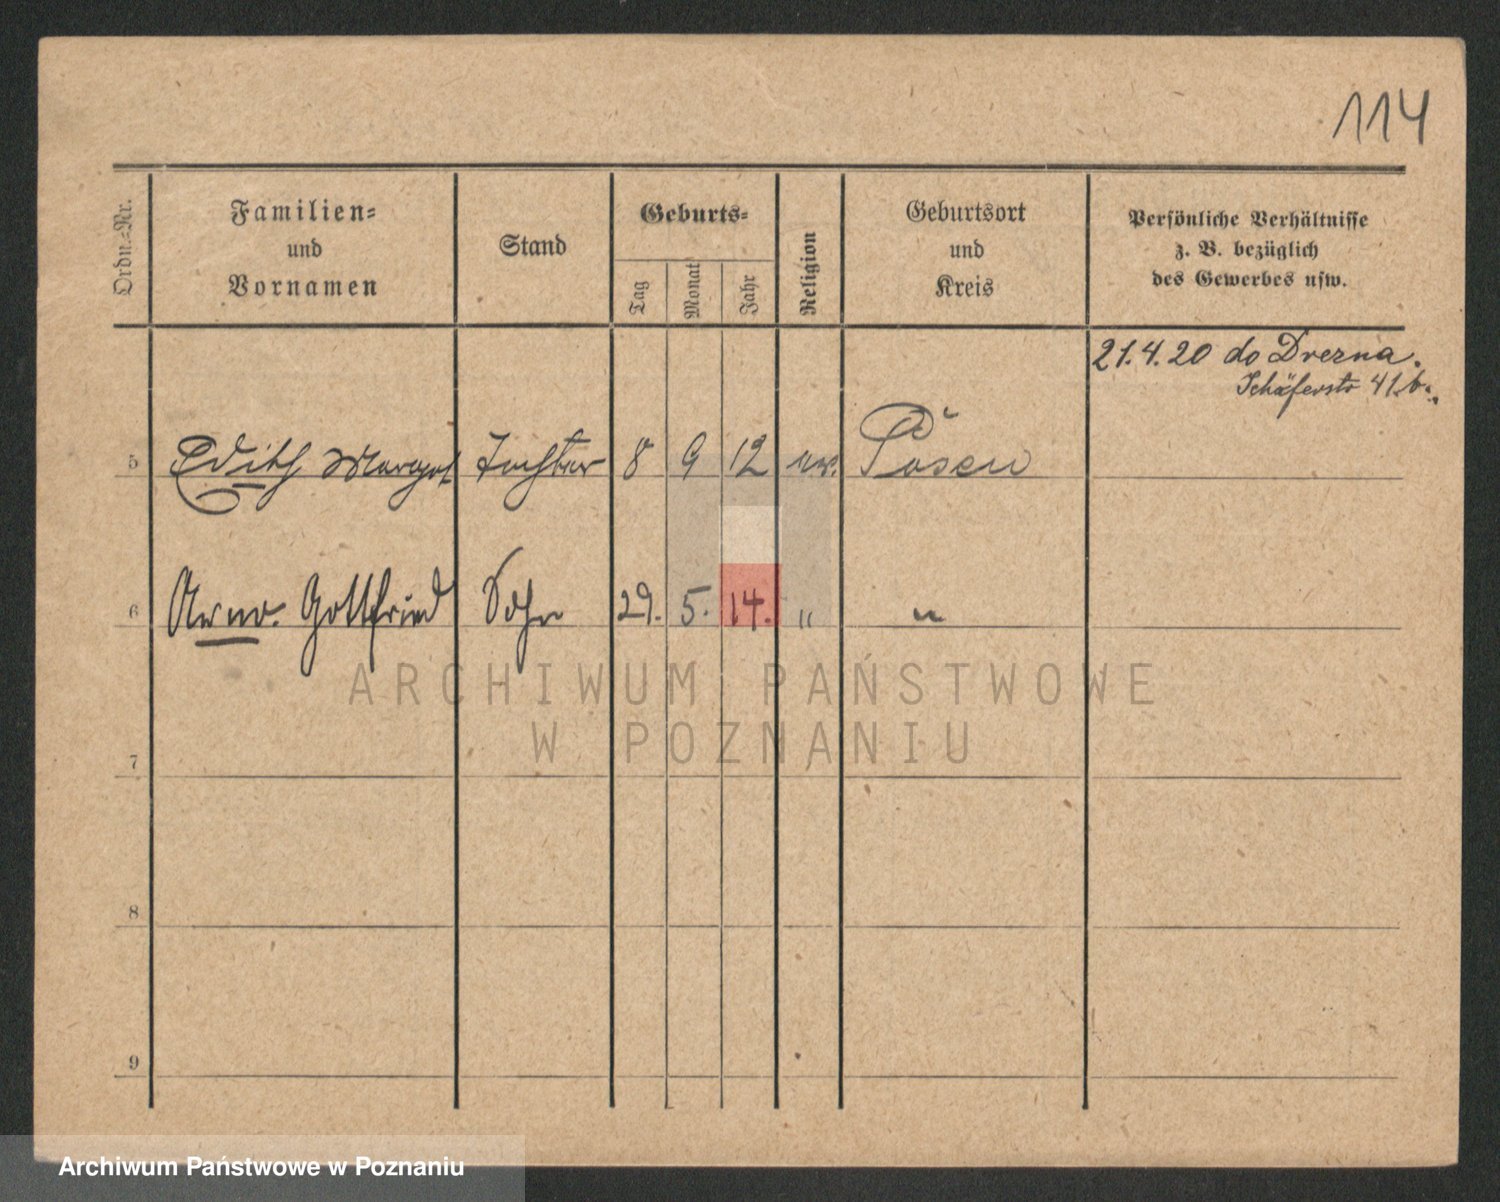 114
Ordn.-Nr.
Familien-
und
Vornamen
Stand
Geburts-
Tag
Monat
Jahr
Religion
Geburtsort
und
Kreis
Persönliche Verhältnisse
z. B. bezüglich
des Gewerbes usw.
21.4.20 do Drezna.
Schäferstr 41.b.
5 Edith Margot Tochter 8 9 12 ev. Posen
6 Arno Gottfried Sohn 29. 5. 14. " "
ARCHIWUM PAŃSTWOWE
W POZNANIU
7
8
9
Archiwum Państwowe w Poznaniu